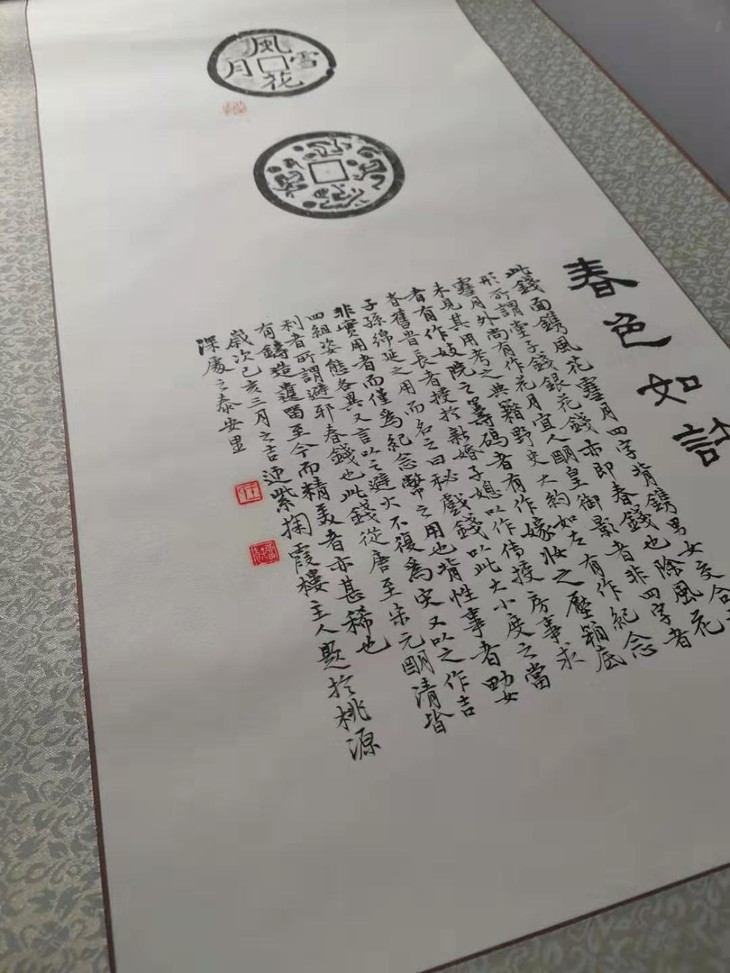 風花雪月
春色如許
此錢面鐫風花雪月四字背鐫男女交合
形所謂堂子錢銀花錢亦即春錢也除風花
雪月外尚有作花月宜人明皇御影者非四字者
未見其用考之典籍野史大約如左有作紀念
者有作妓院之籌碼者有作嫁妝之壓箱底
者舊昔長者授於新婚子媳以作傳授房事求
子孫綿延之用而名之曰秘戲錢以此大小度之當
非實用者而僅為紀念幣之用也背性事者男女
四組姿態各異又言以之避火不復為灾又以之作吉
利者所謂避邪春錢也此錢從唐至宋元明清皆
有鑄造遺留至今而精美者亦甚稀也
歲次己亥三月之吉迎紫掬霞樓主人題於桃源
深處之泰安里